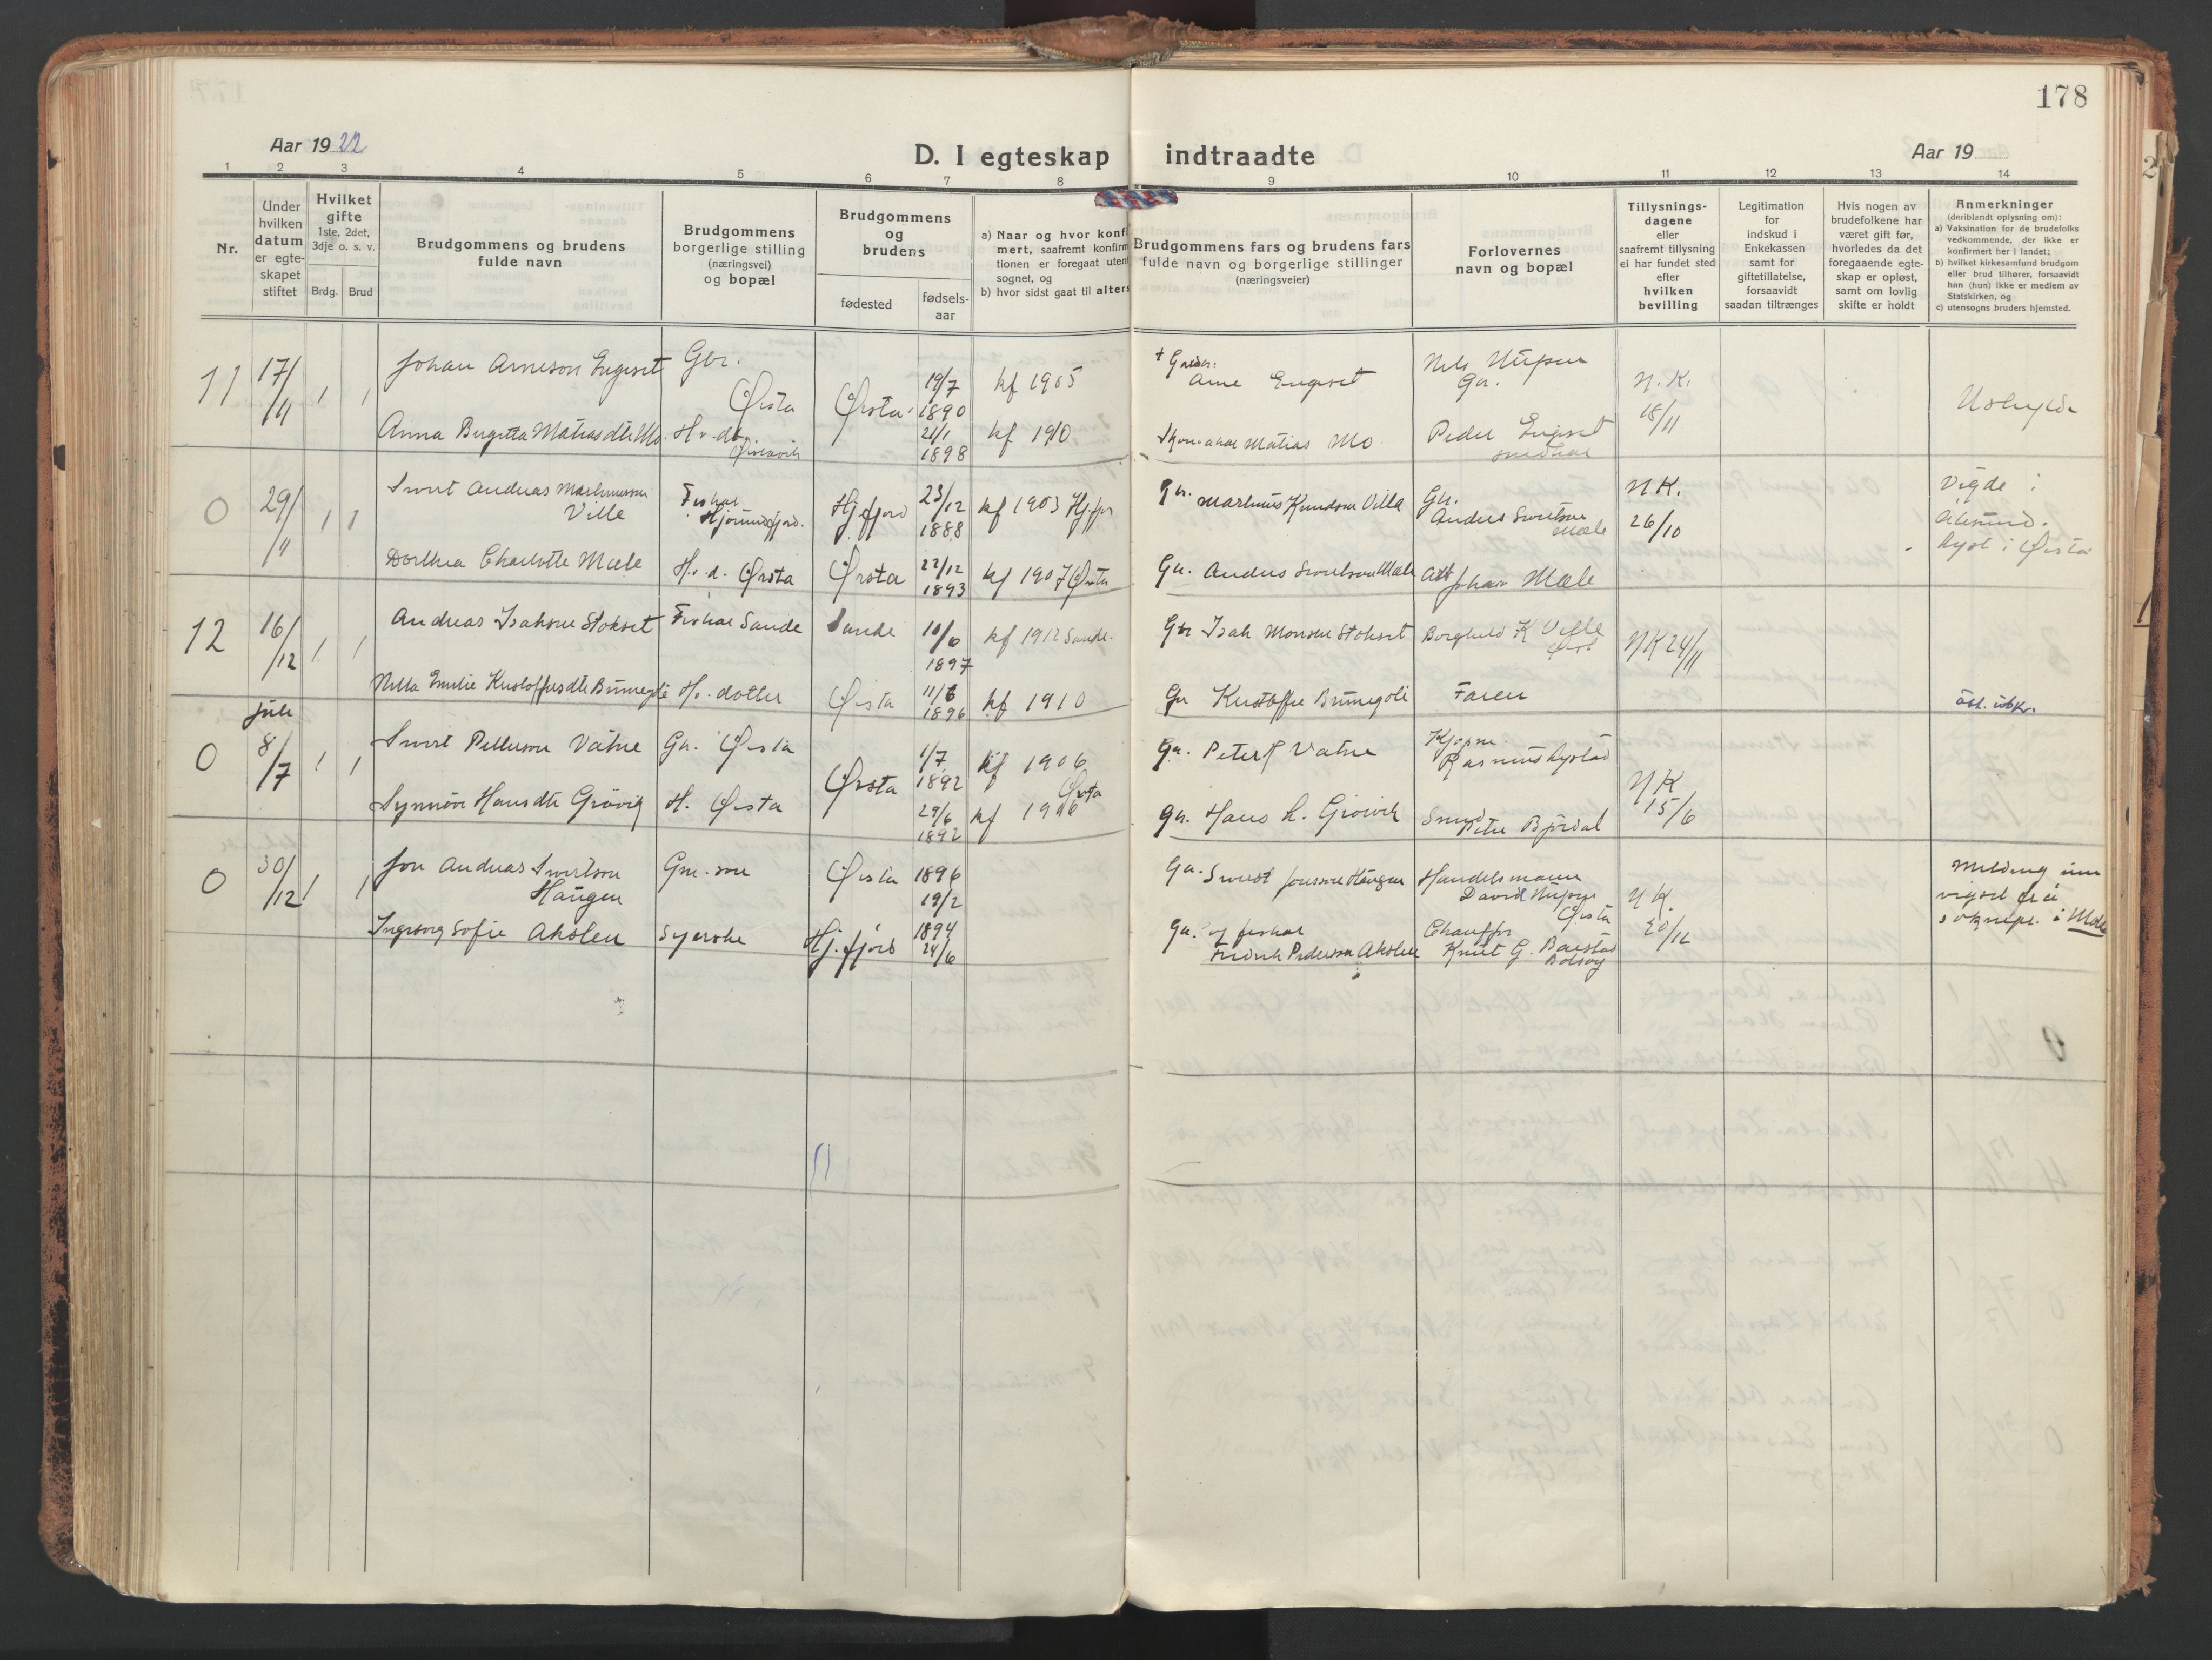 178
Aar 1922
D. I egteskap indtraadte
Aar 19
1 2 3 4 5 6 7 8 9 10 11 12 13 14
Nr.
Under
hvilken
datum
er egte-
skapet
stiftet
Hvilket
gifte
1ste, 2det,
3dje o. s. v.
Brdg. Brud
Brudgommens og brudens
fulde navn
Brudgommens
borgerlige stilling
(næringsvei)
og bopæl
Brudgommens
og
brudens
fødested
fødsels-
aar
a) Naar og hvor konf
mert, saafremt konfirm
tionen er foregaat uten
sognet, og
b) hvor sidst gaat til alters
Brudgommens fars og brudens fars
fulde navn og borgerlige stillinger
(næringsveier)
Forlovernes
navn og bopæl
Tillysnings-
dagene
eller
saafremt tillysning
ei har fundet sted
efter
hvilken
bevilling
Legitimation
for
indskud i
Enkekassen
samt for
giftetillatelse,
forsaavidt
saadan tiltrænges
Hvis nogen av
brudefolkene har
været gift før,
hvorledes da det
foregaaende egte-
skap er opløst,
samt om lovlig
skifte er holdt
Anmerkninger
(deriblandt oplysning om):
a) Vaksination for de brudefolks
vedkommende, der ikke er
konfirmert her i landet;
b) hvilket kirkesamfund brudgom
eller brud tilhører, forsaavidt
han (hun) ikke er medlem av
Statskirken, og
c) utensogns bruders hjemsted.
11 17/11 1 1
Johan Arneson Engeset
Gbr.
Ørsta
Ørsta
19/7
1890
kf 1905
Arne Engeset
Nels
Gr.
N.K.
18/11
Anna Birgitta Matiasdtr Mo
H.v.dt
21/1
1898
kf 1910
Matias Mo
Peder Engeset
0 29/11 1 1
Sivert Andreas Martinusson
Ville
Fiskar
Hjørundfjord.
Hj.fjord
23/12
1888
kf 1903 Hj.fjr
Gr. Martinus Knudson Villa
Gr.
Anders Sivertson
Mæle
N.K.
26/10
Vigde i
Ålesund.
Lyst i Ørsta
Dorthea Charlotte Mæle
H.v.d. Ørsta
Ørsta
22/12
1893
kf 1907 Ørsta
Gr. Anders Sivertson Mæle
Johan Mæle
12 16/12 1 1
Andreas Isakson Stokset
Fiskar Sande
Sande
10/6
1897
kf 1912 Sande.
Gbr Isak Monson Stokset
Borghild K Ville
NK 24/11
Nella Emilie Kristoffersdtr Brunegoli
H.v.dotter
Ørsta
11/6
1896
kf 1910
Gr Kristoffer Brunegoli
Faren
juli
0 8/7 1 1
Sivert Petterson Vatne
Gr. Ørsta
Ørsta
1/7
1892
kf 1906
Ørsta
Gr. Peter Vatne
Kjøpm.
Rasmus Rystad
NK
15/6
Synnøve Hansdtr Grøvig
H. Ørsta
29/6
1892
kf 1906
Gr. Hans L. Grøvik
Smed
Peter Bjørdal
0 30/12 1 1
Jon Andreas Sivertson
Haugen
Gm.son
Ørsta
1896
19/2
Gr. Sivert Jonsson Haugen
Handelsmann
David
Ørsta
N K.
20/12
Melding um
vigsel frå
soknepr. i Molde
Ingeborg Sofie Akslen
Syerske
Hj.fjord
1894
24/6
Gr. og fiskar
Fredrik Pederson Akslen
Chauffør
Knut G. Barstad
Bolsøy